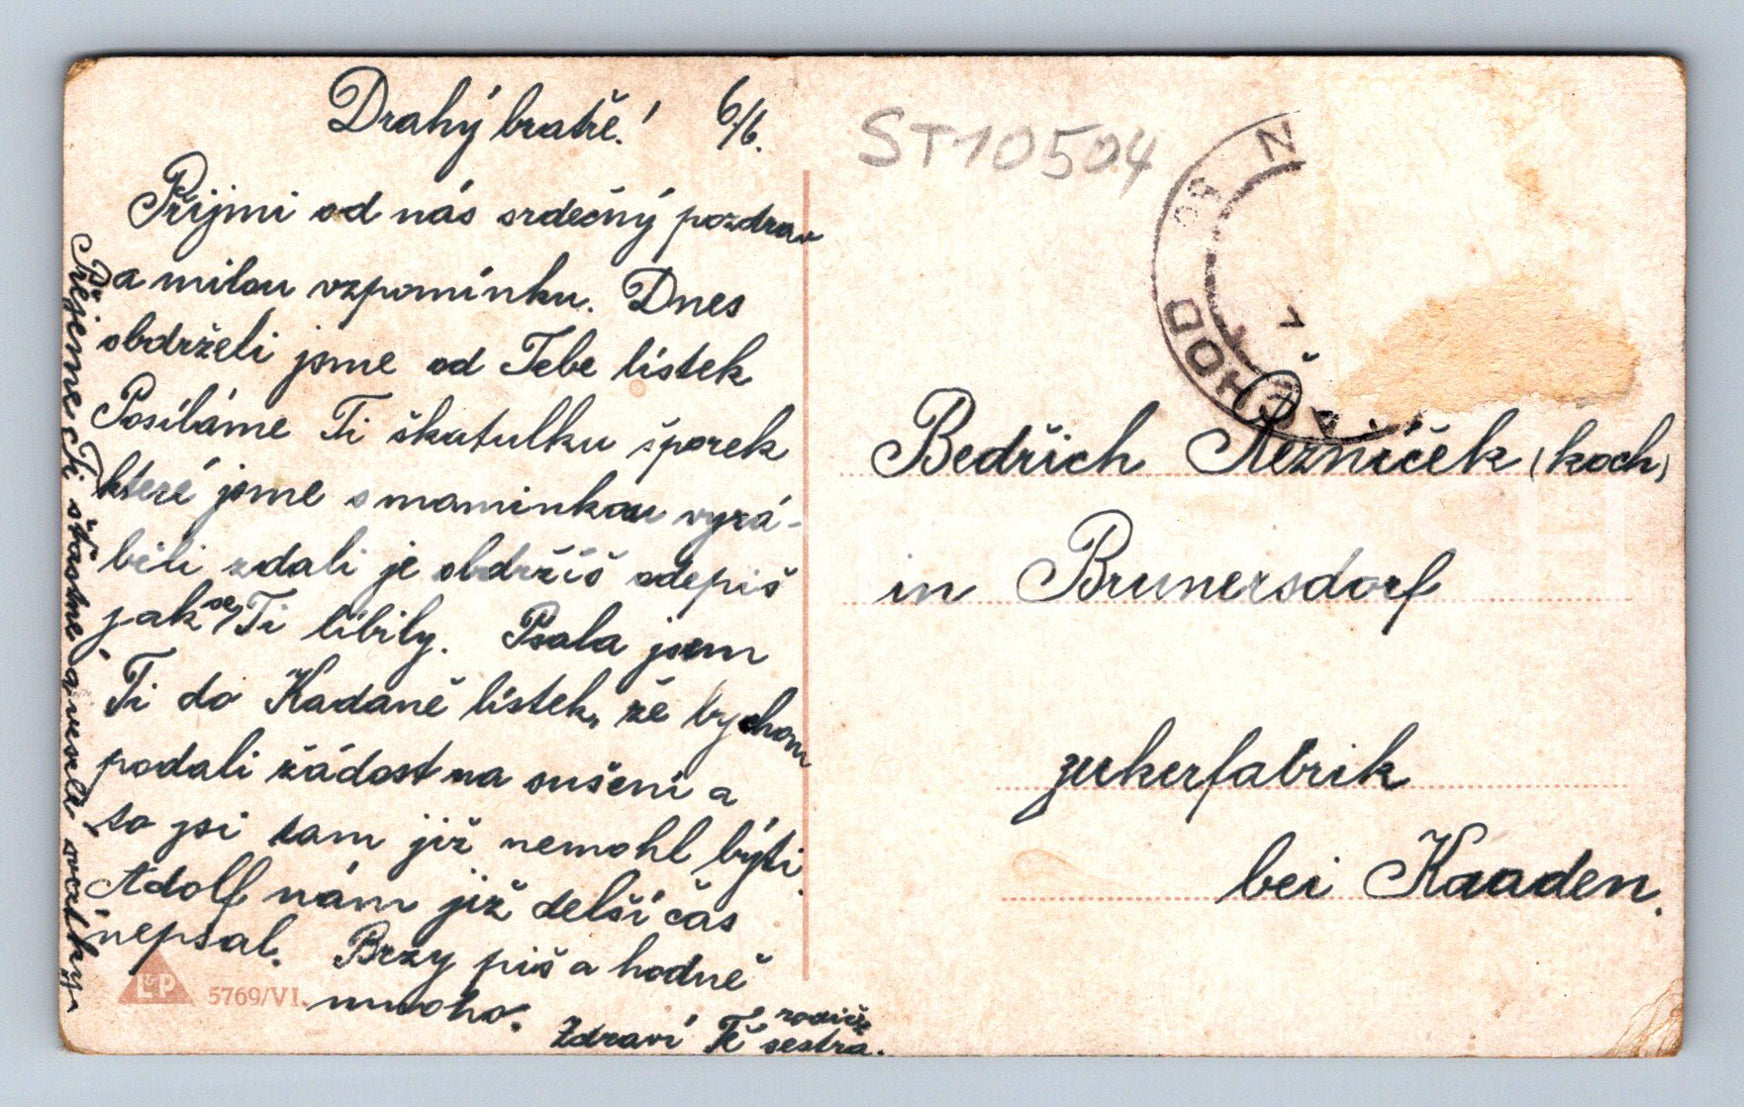 Drahý bratře! 6/6.
Přijmi od nás srdečný pozdrav
a milou vzpomínku. Dnes
obdrželi jsme od Tebe lístek
Posíláme Ti škatulku šporek
které jsme s maminkou vyrá-
běli zdali je obdržíš odepiš
jak se Ti líbily. Psala jsem
Ti do Kadaně lístek, že bychom
podali žádost na sušení a
to jsi tam již nemohl býti.
Adolf nám již delší čas
nepsal. Brzy piš a hodně
mnoho.
Zdraví Tě rodiče
sestra.
Přejeme Ti šťastné a veselé svátky
L&P 5769/VI.
ST10504
CHOD
Bedřich Řezníček (koch)
in Brunersdorf
zukerfabrik
bei Kaaden.